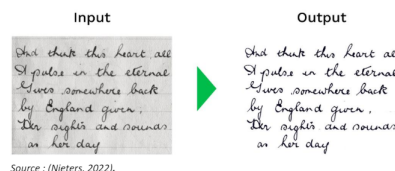 Input
Output
And think this heart, all
A pulse in the eternal
Gives somewhere back
by England given,
Her sights and sounds
as her day
And think this heart all
A pulse in the eternal
Gives somewhere back
by England given,
Her sights and sounds
as her day
Source : (Nieters, 2022).